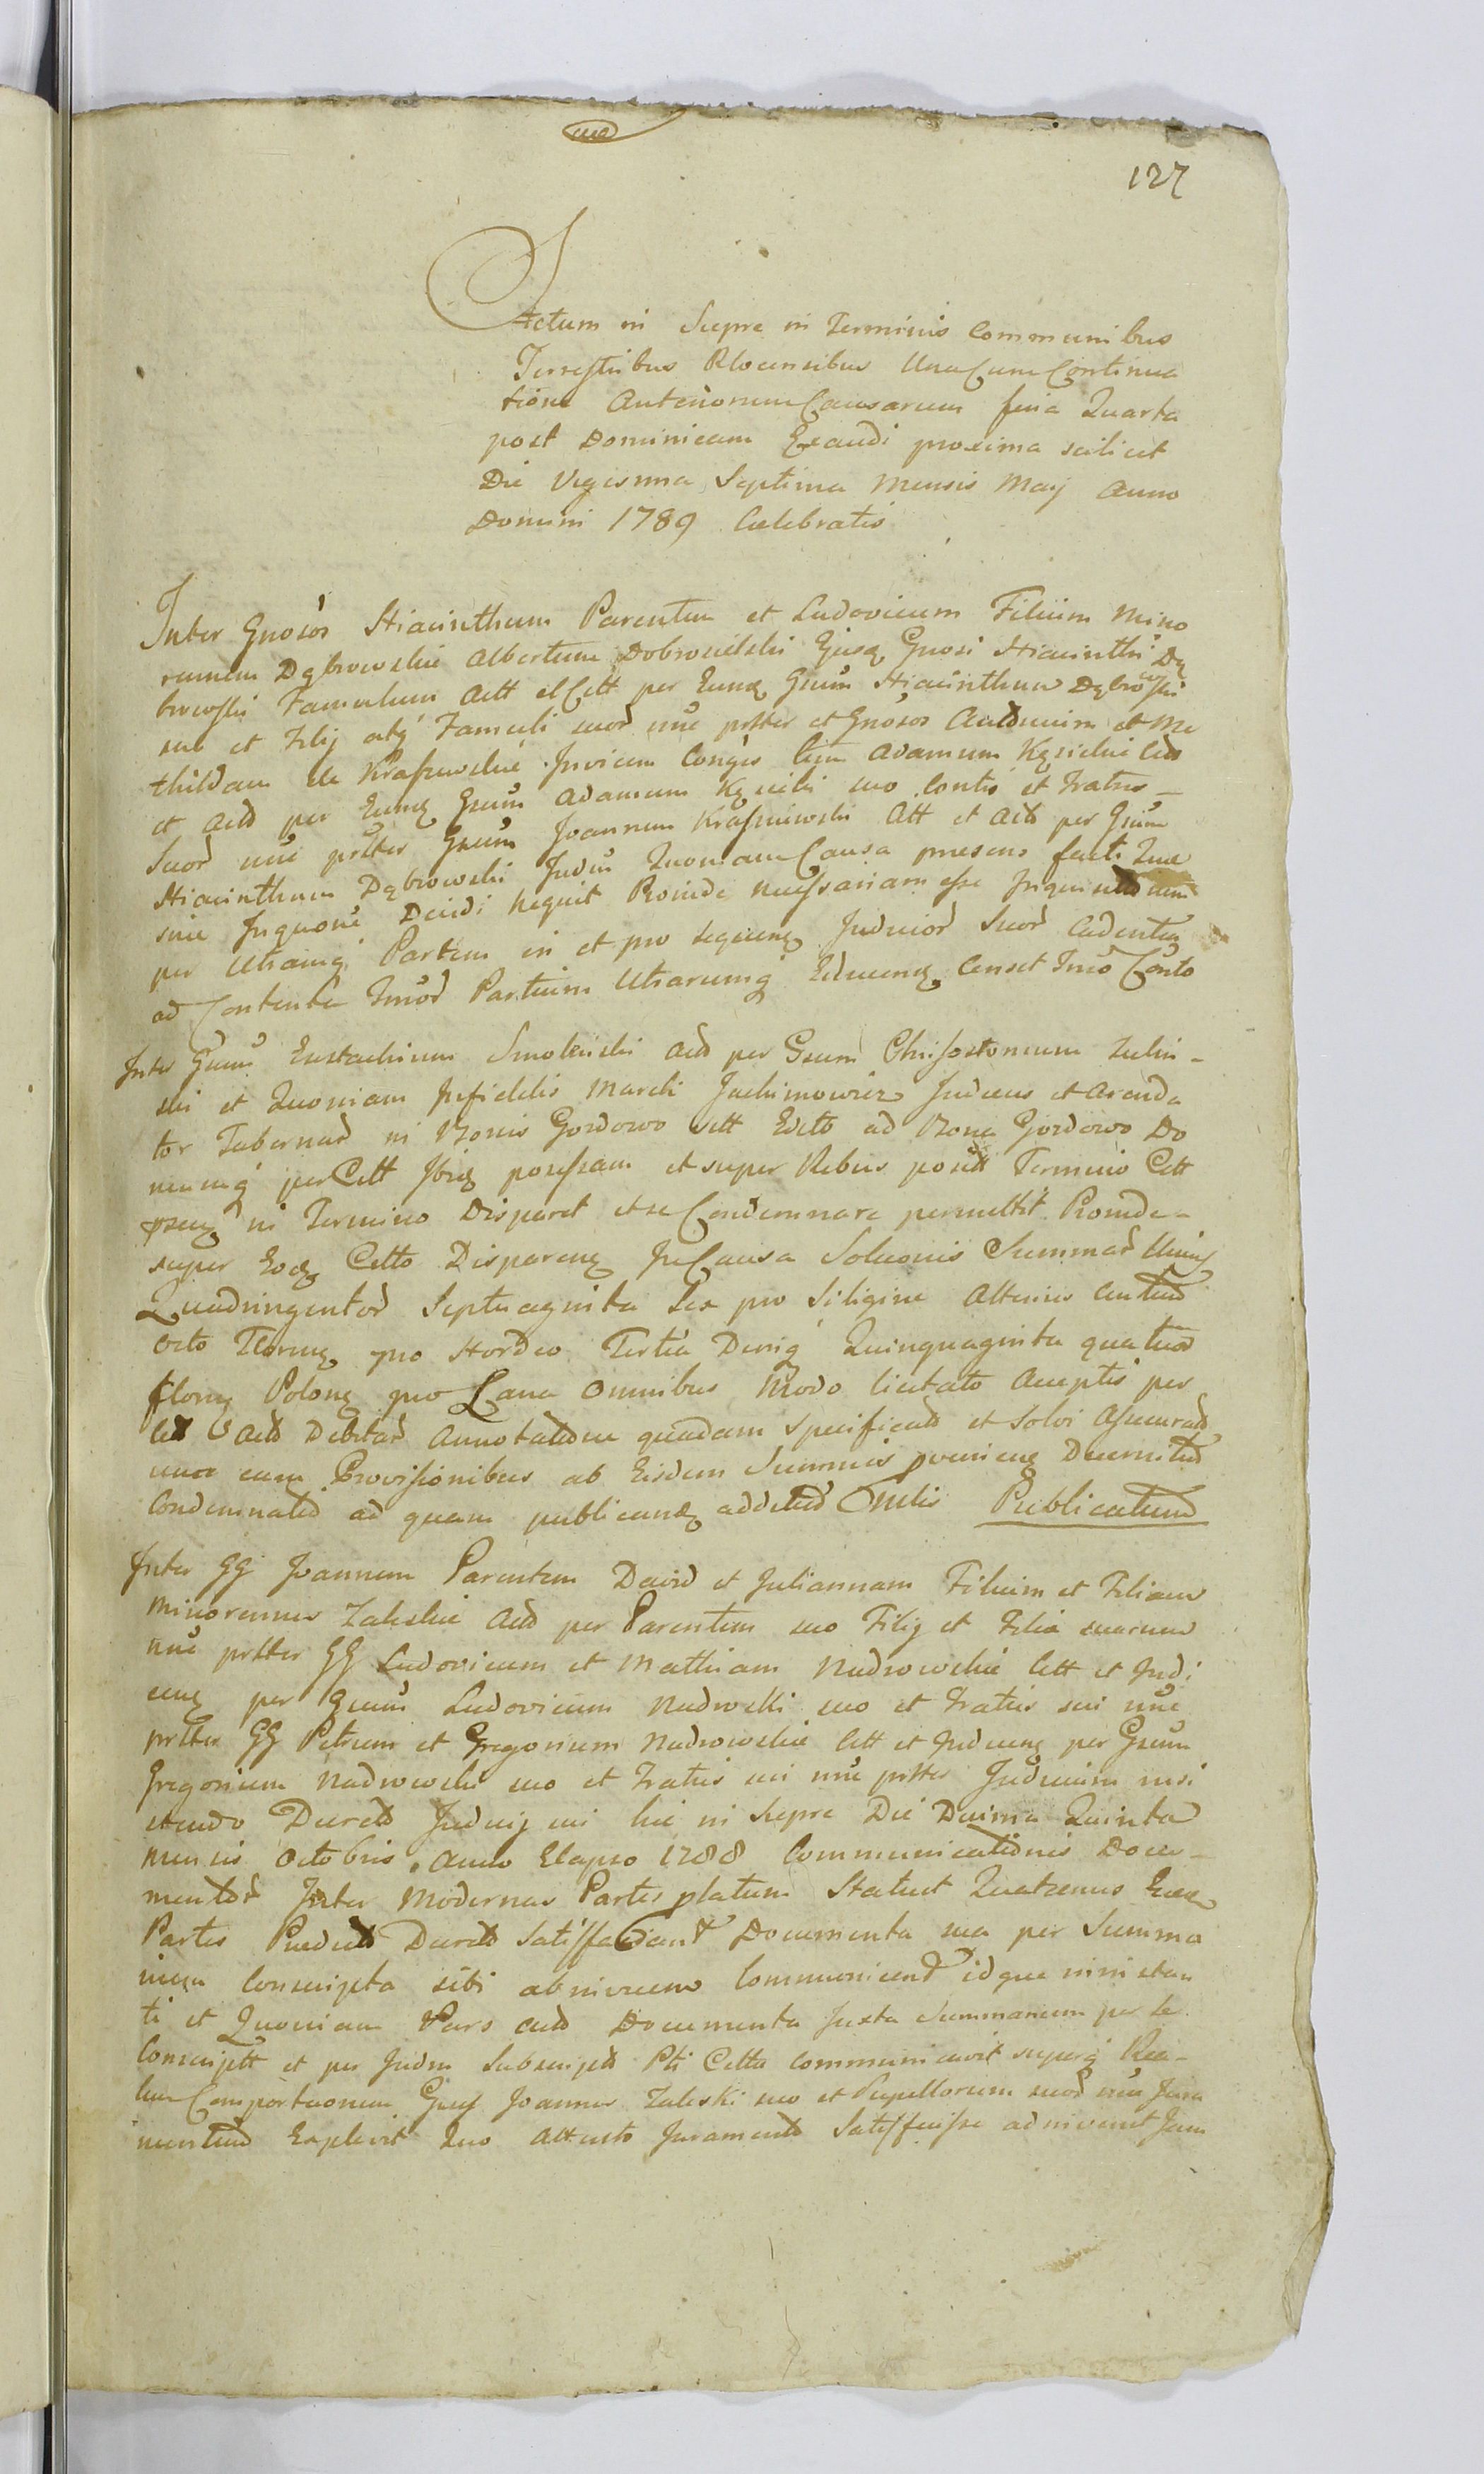 127
Actum in Sierpc in Terminis Communibus
Terrestribus Plocensibus Una Cum Continua
tione Anteriorum Causarum feria Quarta
post Dominicam Exaudi proxima scilicet
Die Vigesima Septima Mensis Maij Anno
Domini 1789 Celebratis
Inter Gnosos Hiacinthum Parentem et Ludovicum Filium Mino
rennem Dąbrowskie Albertum Dobrosielski Ejusq Gnosi Hiacinthi Dą
browski Famulum Actt et Citt per Eunq Gnum Hiacinthum Dąbrowski
suo et Filij atq Famuli suor nne prtter et Gnosos Antonium et Me
thildam de Kraszewskie Invicem Conges tum Adamum Kęsickie Citt
et Actt per Eunq Gnum Adamum Kęsicki suo Contis et Fratris
Suor nne prtter Gnum Joannem Krasniewski Att et Actt per Gnum
Hiacinthum Dąbrowski Judm Quoniam Causa praesens facti Quae
sine Inqnone Decidi nequit Proinde necessariam esse Inquisitionem
per Utramq Partem in et pro sequenq Judicior Suor Cadentia
ad Contenta Imor Partium Utrarumq Educenq Censet Imo Conto
Inter Gnum Eustachium Smolenski Actt per Gnum Chrisostomum Zulin-
ski et Quoniam Infidelis Marek Jachimowicz Judeus et Arenda
tor Tabernae in Bonis Gozdowo Citt Edito ad Bona Gozdowo Do
mumq per Citt Ibiq possessam et super Rebus posit Termino Citt
psenq in Termino Disparet et se Condemnare permittit Proinde
super Eoq Citto Disparenq In Causa Solucionis Summar Unius
Quadringentor Septuaginta Sex pro Siligine Alterius Centum
octo Floreнq pro Hordeo Tertia Deniq Quinquaginta quatuor
florenq Polonq pro Lana Omnibus Modo licitato Acceptis per
Citt Actt Debitar Annotatione quadam specificatt et Solvi Assecurat
una cum Provisionibus ab Eisdem Summis provenienq Decernitur
Condemnatio ad quam publicanq additus Mlis Publicatum
Inter GG Joannem Parentem David et Juliannam Filium et Filiam
Minorennes Zaleskie Actt per Parentem suo Filij et Filia suarum
nne prtter GG Ludovicum et Mathiam Nadrowskie Citt et Indu
cenq per Gnum Ludovicum Nadrowski suo et Fratris sui nne
prtter GG Petrum et Gregorium Nadrowskie Citt et Inducenq per Gnum
Gregorium Nadrowski suo et Fratris sui nne prtter Judicium insi
stendo Decreto Judicij sui hic in Sierpc Die Decima Quinta
Mensis Octobris Anno Elapso 1788 Communicationis Docu-
mentor Inter Modernas Partes platum Statuit Quatenus Eaeq
Partes Praedicto Decreto Satisfaciant Documenta sua per Summa
rium Conscripta sibi ab invicem Communicent idque ministan
ti et Quoniam Pars Actt Documenta Juxta Summarium per se
Conscriptt et per Judm Subscriptt Pti Citta Communicavit superq Rea-
lem Comportaonem Gnus Joannes Zaleski suo et Pupillorum suor nne Jura
mentum Explevit Quo Attento Juramento Satisfecisse adinvenit Jam